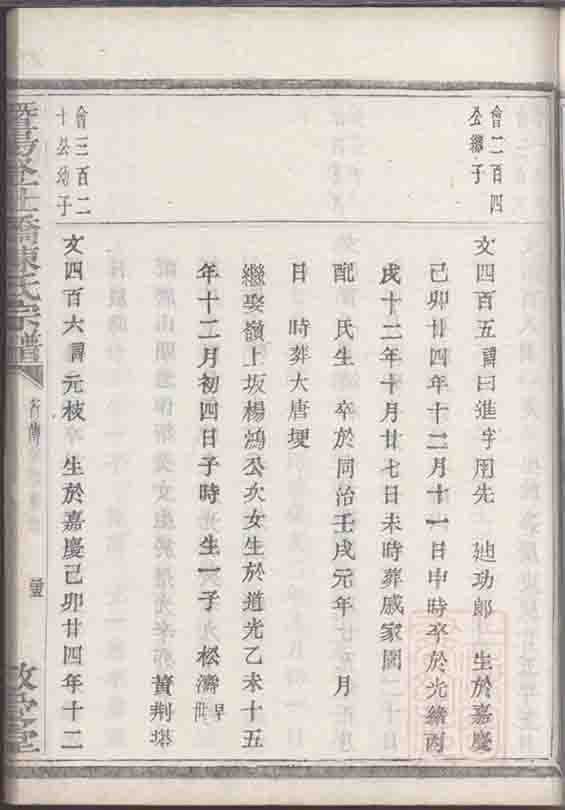 會二百四
公繼子
文四百五諱曰進字用先 廸功郎 生於嘉慶
己卯廿四年十二月十一日申時卒於光緒丙
戌十二年十月廿七日未時葬戚家園
配 氏生 卒於同治壬戌元年 月
日 時葬大唐埂
繼娶嶺上坂楊鴻公次女生於道光乙未十五
年十二月初四日子時 生一子 松濤早世
黄荆塔
會三百二
十公幼子
文四百六諱元枝 生於嘉慶己卯廿四年十二
橋陳氏宗譜
行傳